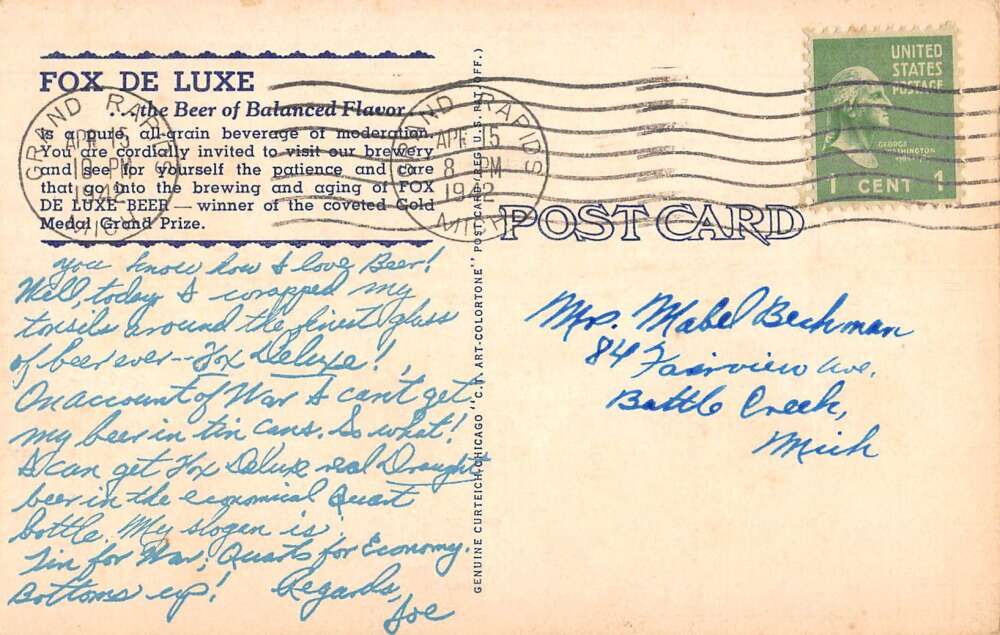 FOX DE LUXE
. . . the Beer of Balanced Flavor
is a pure, all-grain beverage of moderation.
You are cordially invited to visit our brewery
and see for yourself the patience and care
that go into the brewing and aging of FOX
DE LUXE BEER — winner of the coveted Gold
Medal Grand Prize.
GRAND RAPIDS
APR 15
8 PM
1942
MICH.
GRAND RAPIDS
APR 15
8 PM
1942
MICH.
UNITED
STATES
POSTAGE
GEORGE
WASHINGTON
1 CENT 1
POST CARD
you know how I love Beer!
Well, today I wrapped my
tonsils around the finest glass
of beer ever -- Fox Deluxe!
On account of War I can't get
my beer in tin cans. So what!
I can get Fox Deluxe real Draught
beer in the economical Quart
bottle. My slogan is
Tin for War; Quarts for Economy.
Bottoms up! Regards,
Joe
GENUINE CURTEICH-CHICAGO "C.T. ART-COLORTONE" POST CARD (REG. U.S. PAT. OFF.)
Mrs. Mabel Beckman
84 Fairview Ave.
Battle Creek,
Mich